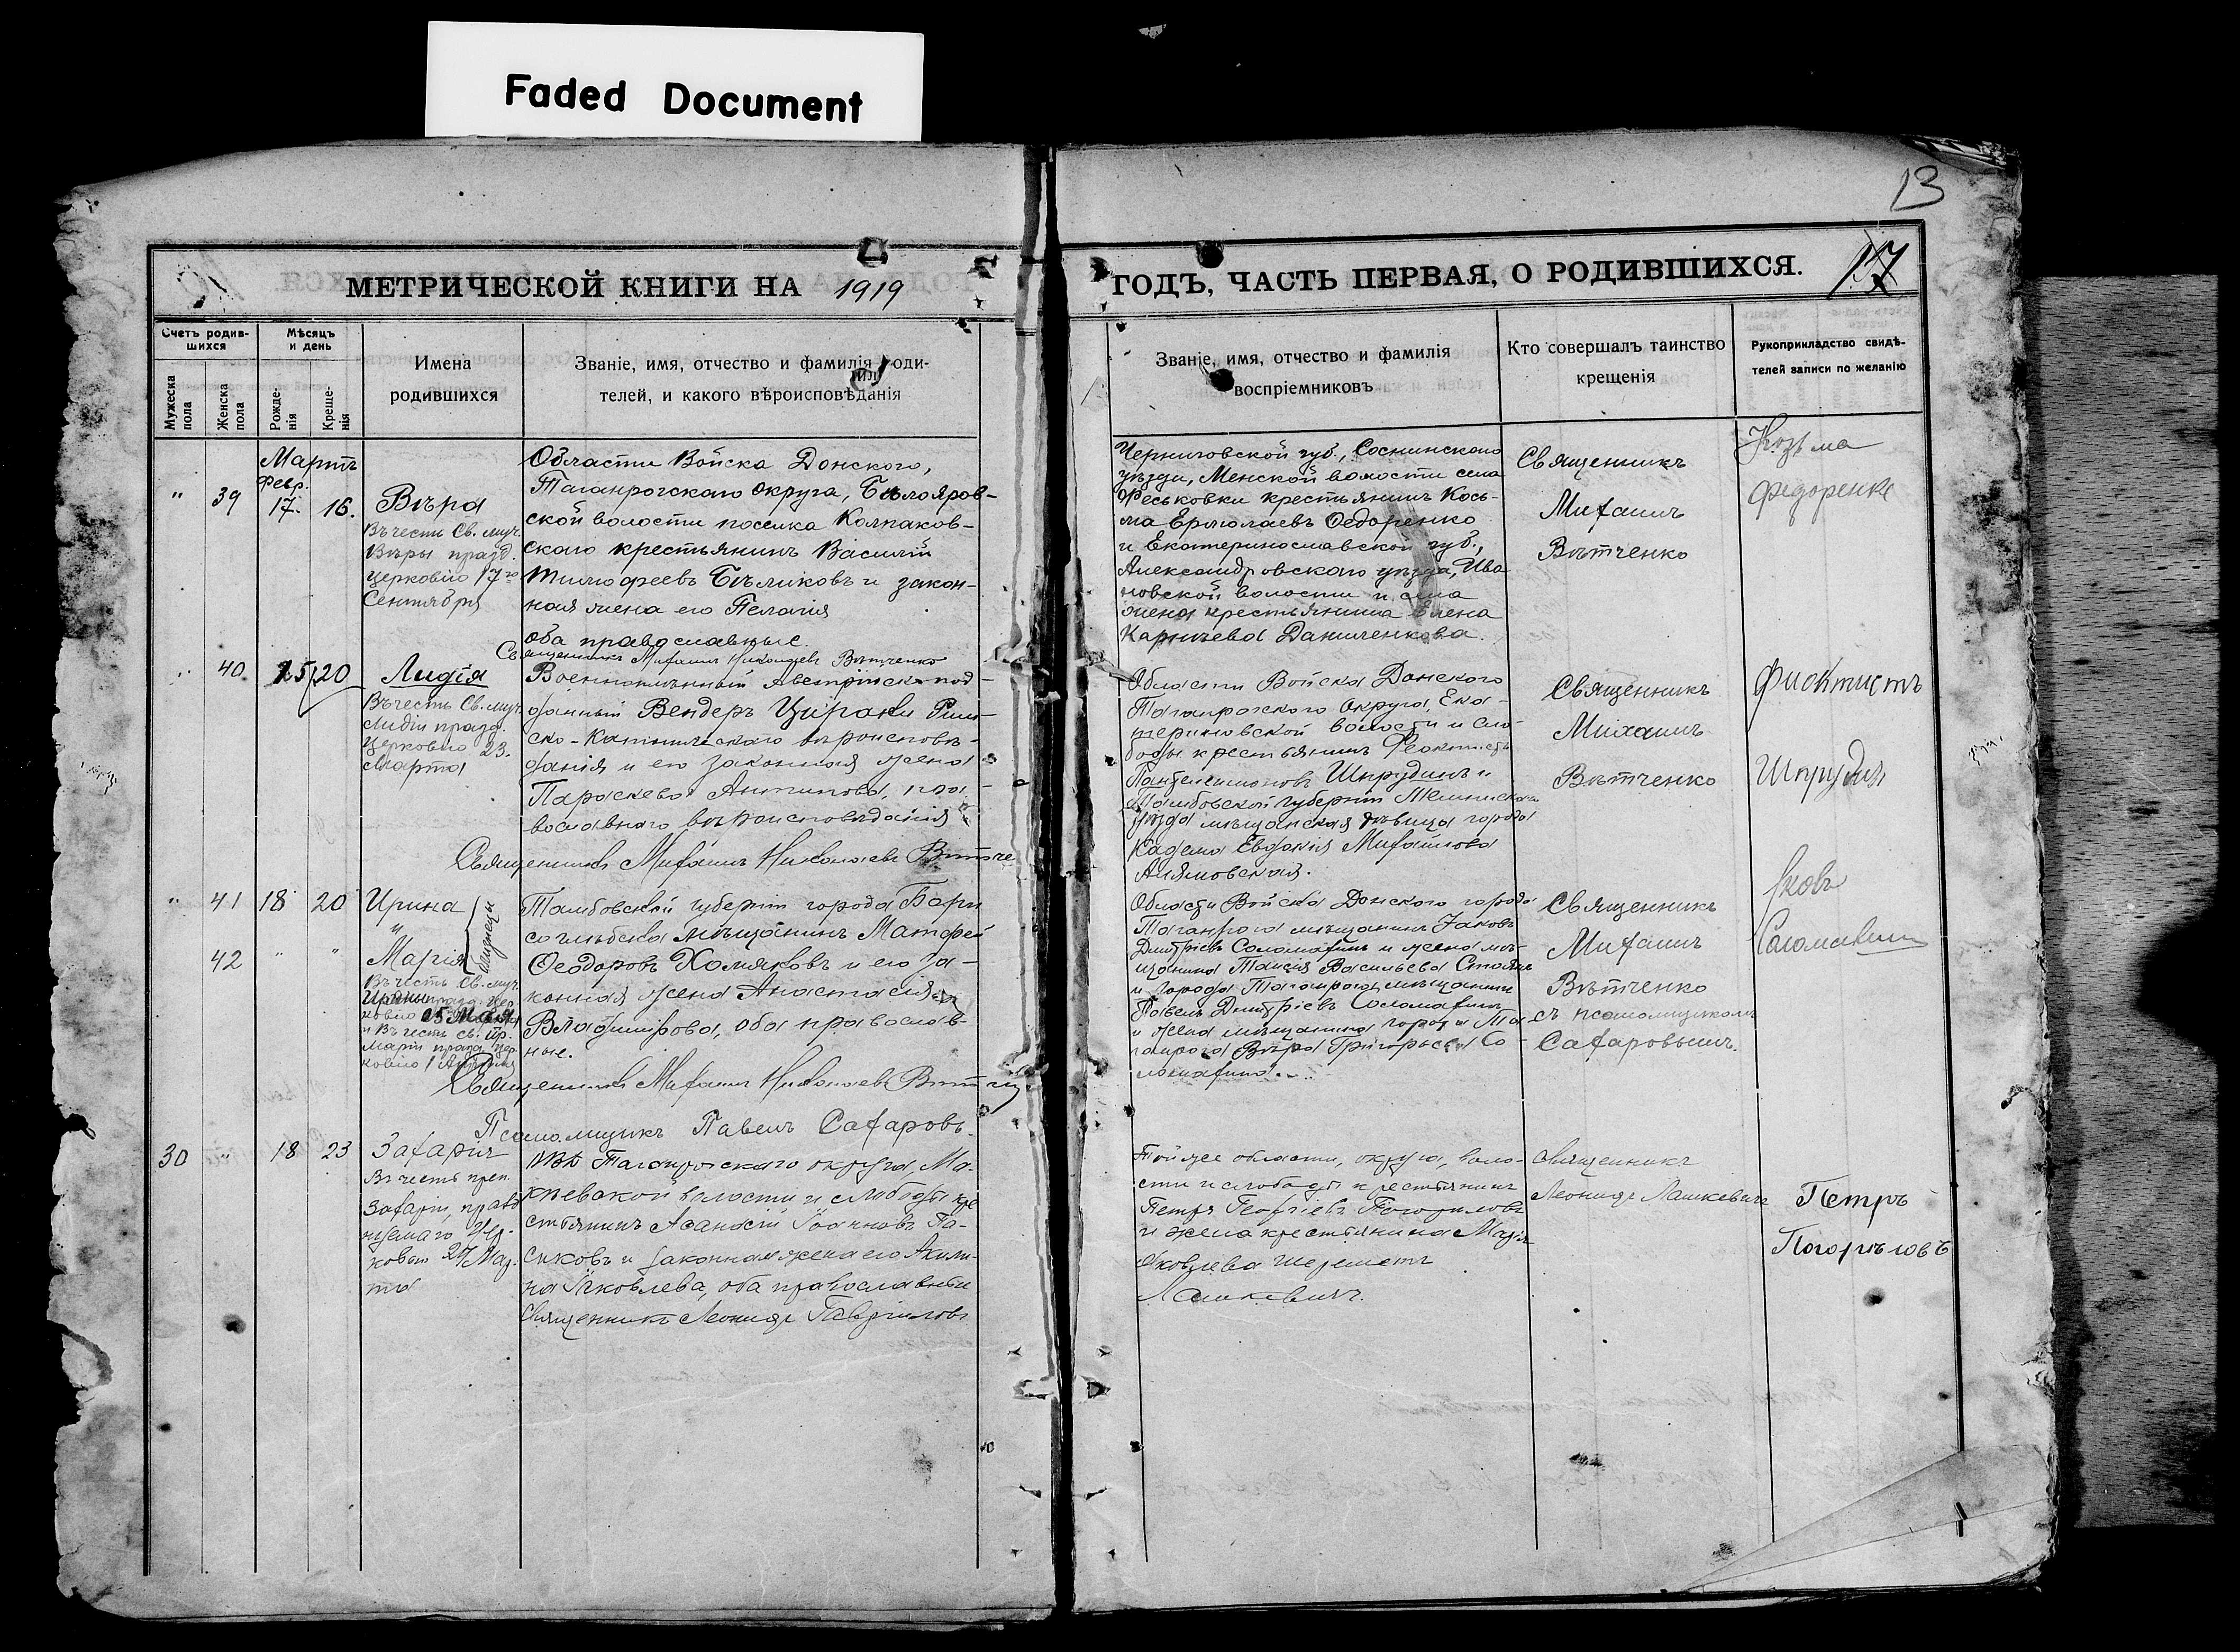 Faded Document
13
МЕТРИЧЕСКОЙ КНИГИ НА 1919
ГОДЪ, ЧАСТЬ ПЕРВАЯ, О РОДИВШИХСЯ.
17
Счетъ родив-
шихся
Мѣсяцъ
и день
Мужеска
пола
Женска
пола
Рожде-
нія
Креще-
нія
Имена
родившихся
Званіе, имя, отчество и фамилія роди-
телей, и какого вѣроисповѣданія
Званіе, имя, отчество и фамилія
воспріемниковъ
Кто совершалъ таинство
крещенія
Рукоприкладство свидѣ-
телей записи по желанію
Мартъ
Февр.
" 39 17. 16.
Вѣра
Въ честь Св. муч.
Вѣры празд.
церковію 17го
Сентября
Области Войска Донского,
Таганрогскаго округа, Бѣлояров-
ской волости поселка Колпаков-
скаго крестьянинъ Василій
Тимофеевъ Бѣликовъ и закон-
ная жена его Пелагія
оба православные.
Священникъ Михаилъ Николаевъ Вѣтченко
Черниговской губ., Соснинскаго
уѣзда, Менской волости села
Феськовки крестьянинъ Кось-
ма Ермолаевъ Ѳедоренко
и Екатеринославской губ.,
Александровскаго уѣзда, Ива
новской волости и села
жена крестьянина Елена
Карпчева Даниленкова.
Священникъ
Михаилъ
Вѣтченко
Козьма
Федоренко
40 15 20
Лидія
Въ честь Св. муч.
Лидіи празд.
церковію 23.
Марта
Военноплѣнный Австрійско-под-
данный Вендеръ Цироки Рим-
ско-Католическаго вѣроисповѣ-
данія и его законная жена
Параскева Антипова, пра-
вославнаго вѣроисповѣданія
Священникъ Михаилъ Николаевъ Вѣтче
Области Войска Донского
Таганрогскаго Округа, Ека-
териновской волости и сло-
боды крестьянинъ Феоктистъ
Пантелеимоновъ Шпрудинъ и
Тамбовской губерніи
уѣзда мѣщанская дѣвица города
Кадома Евдокія Михайлова
Священникъ
Михаилъ
Вѣтченко
Фиоктистъ
Шпрудин
" 41 18 20
Ирина
и
42 " "
Марія
близнецы
Въ честь Св. муч.
Ирины празд. цер
ковію 5 Мая
и Въ честь св. пр.
Маріи празд. цер
ковію 1 Апрѣля
Тамбовской губерніи города Бори
соглѣбска мѣщанинъ Матфей
Ѳеодоровъ Хомяковъ и его за-
конная жена Анастасія
Владимірова, оба православ-
ные.
Священникъ Михаилъ Николаевъ Вѣтче
Псаломщикъ Павелъ Сахаровъ.
Области Войска Донского города
Таганрога мѣщанинъ Іаковъ
Дмитріевъ Соломахинъ и жена мѣ-
щанина Таисія Васильева
и города Таганрога мѣщанинъ
Павелъ Дмитріевъ Соломахинъ
и жена мѣщанина города Та-
ганрога Вѣра Григорьева Со-
ломахина.
Священникъ
Михаилъ
Вѣтченко
съ псаломщикомъ
Сахаровымъ.
Яковъ
Соломахинъ
30 " 18 23
Захарія
Въ честь преп.
Захаріи, празд
нуемаго Цер-
ковью 24 Мар-
та
ОВД Таганрогскаго округа, Ма-
кѣевской волости и слободы кре
стьянинъ Аѳанасій Іоанновъ Га-
сиковъ и законная жена его Акили-
на Яковлева, оба православные
Священникъ Леонидъ Гавріиловъ
Той же области, округа, воло-
сти и слободы крестьянинъ
Петръ Георгіевъ Погорѣловъ
и жена крестьянина Марія
Яковлева Шереметъ
Лашкевичъ.
Священникъ
Леонидъ Лашкевичъ
Петръ
Погорѣловъ